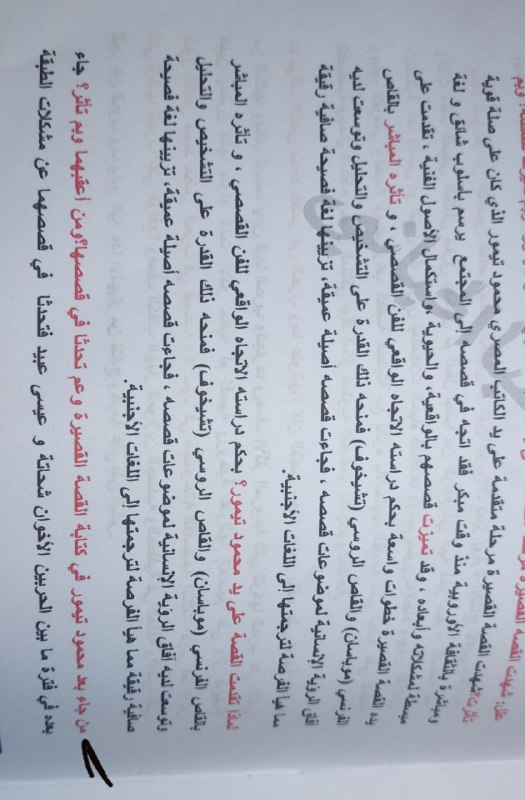 علل: شهدت القصة القصيرة
قوية على صلة متقدمة على يد الكاتب المصري محمود تيمور الذي كان
تأثرت شهدت القصة القصيرة مرحلة
ومباشرة بالثقافة الأوروبية منذ وقت مبكر فقد اتجه في قصصه إلى المجتمع يرسم بأسلوب شائق و لغة
مبسطة لمشكلاته وأبعاده ، وقد تميزت قصصهم بالواقعية، والحيوية ،واستكمال الأصول الفنية ، تقدمت على
يده القصة القصيرة خطوات واسعة بحكم دراسته الاتجاه الواقعي للفن القصصي ، و تأثره المباشر بالقاص
الفرنسي (موباسان) والقاص الروسي (تشيخوف) فمنحه ذلك القدرة على التشخيص والتحليل وتوسعت لديه
آفاق الرؤية الإنسانية لموضوعات قصصه ، فجاءت قصصه أصيلة عميقة، تزينها لغة فصيحة صافية رقيقة
مما هيأ الفرصة لترجمتها إلى اللغات الأجنبية.
لماذا تقدمت القصة على يد محمود تيمور؟ بحكم دراسته الاتجاه الواقعي للفن القصصي ، و تأثره المباشر
بالقاص الفرنسي (موباسان) والقاص الروسي (تشيخوف) فمنحه ذلك القدرة على التشخيص والتحليل
وتوسعت لديه آفاق الرؤية الإنسانية لموضوعات قصصه ، فجاءت قصصه أصيلة عميقة، تزينها لغة فصيحة
صافية رقيقة مما هيأ الفرصة لترجمتها إلى اللغات الأجنبية.
من جاء بعد محمود تيمور في كتابة القصة القصيرة وعم تحدثا في قصصها؟ومن أعقبهما وبم تأثر؟ جاء
بعده في فترة ما بين الحربين الأخوان شحاتة و عيسى عبيد فتحدثا في قصصهما عن مشكلات الطبقة